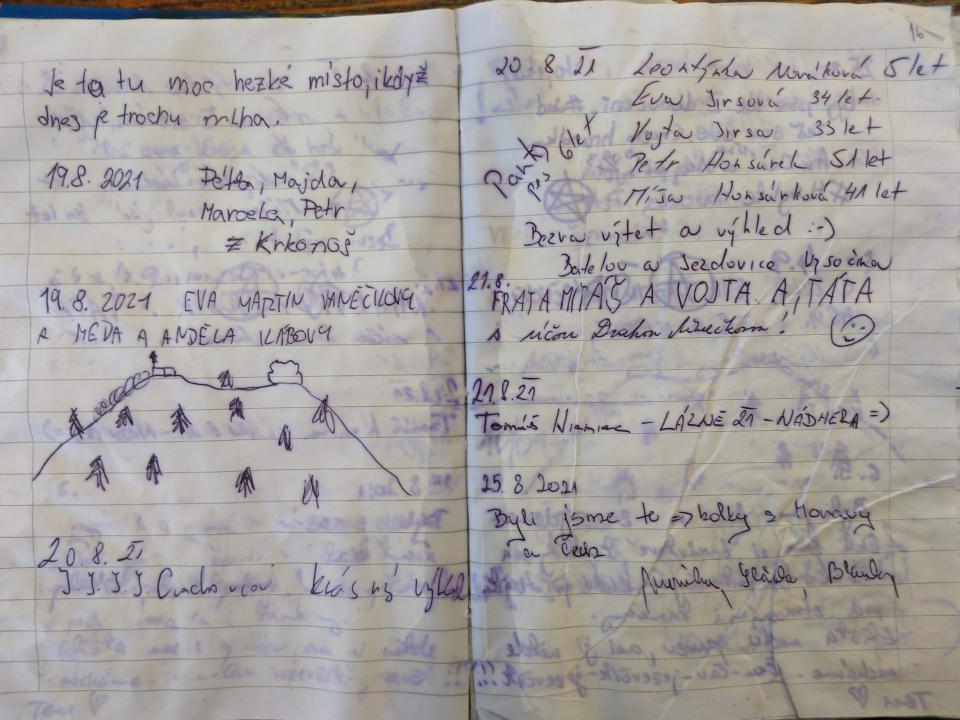 Je to tu moc hezké místo, ikdyž
dnes je trochu mlha.
19.8. 2021 Péťa, Majda,
Marcela, Petr
z Krkonoš
19.8. 2021 EVA MARTIN VANĚČKOVI
A MÉĎA A ANDĚLA
20.8. 21
J.J.J.J. krásný výhled
16
20 8 21 Leontýnka Nováková 5 let
Eva Jirsová 34 let
Vojta Jirsa 33 let
Petr Honsárek 51 let
Míša Honsárková 41 let
6 let
pes
Bezva výlet a výhled :-)
Batelov a Jezdovice Vysočina
21.8.
FRÁŤA MÍŤAŠ A VOJTA A TÁTA
s
21.8.21
Tomáš - LÁZNĚ 21 - NÁDHERA =)
25.8 2021
Byli jsme tu => holky z Moravy
a Čech